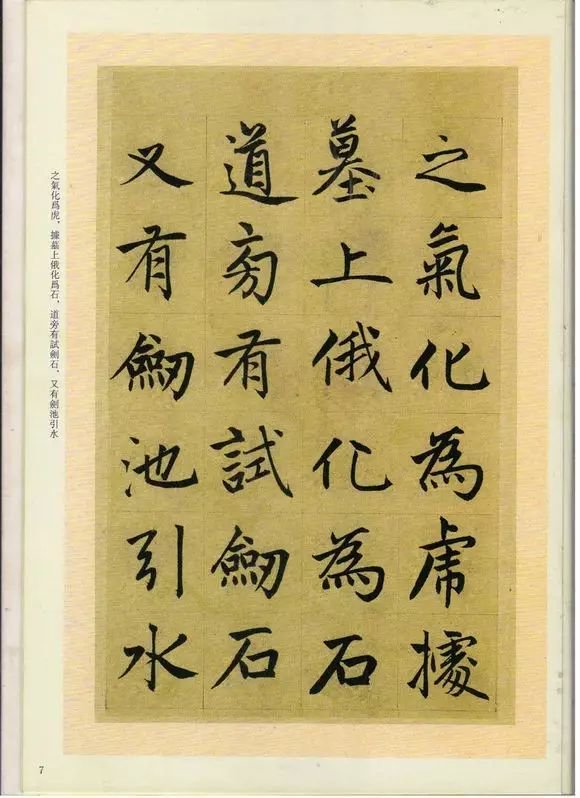 之氣化為虎據
墓上俄化為石
道旁有試劒石
又有劒池引水
之氣化爲虎，據墓上俄化爲石，道旁有試劍石，又有劍池引水
7